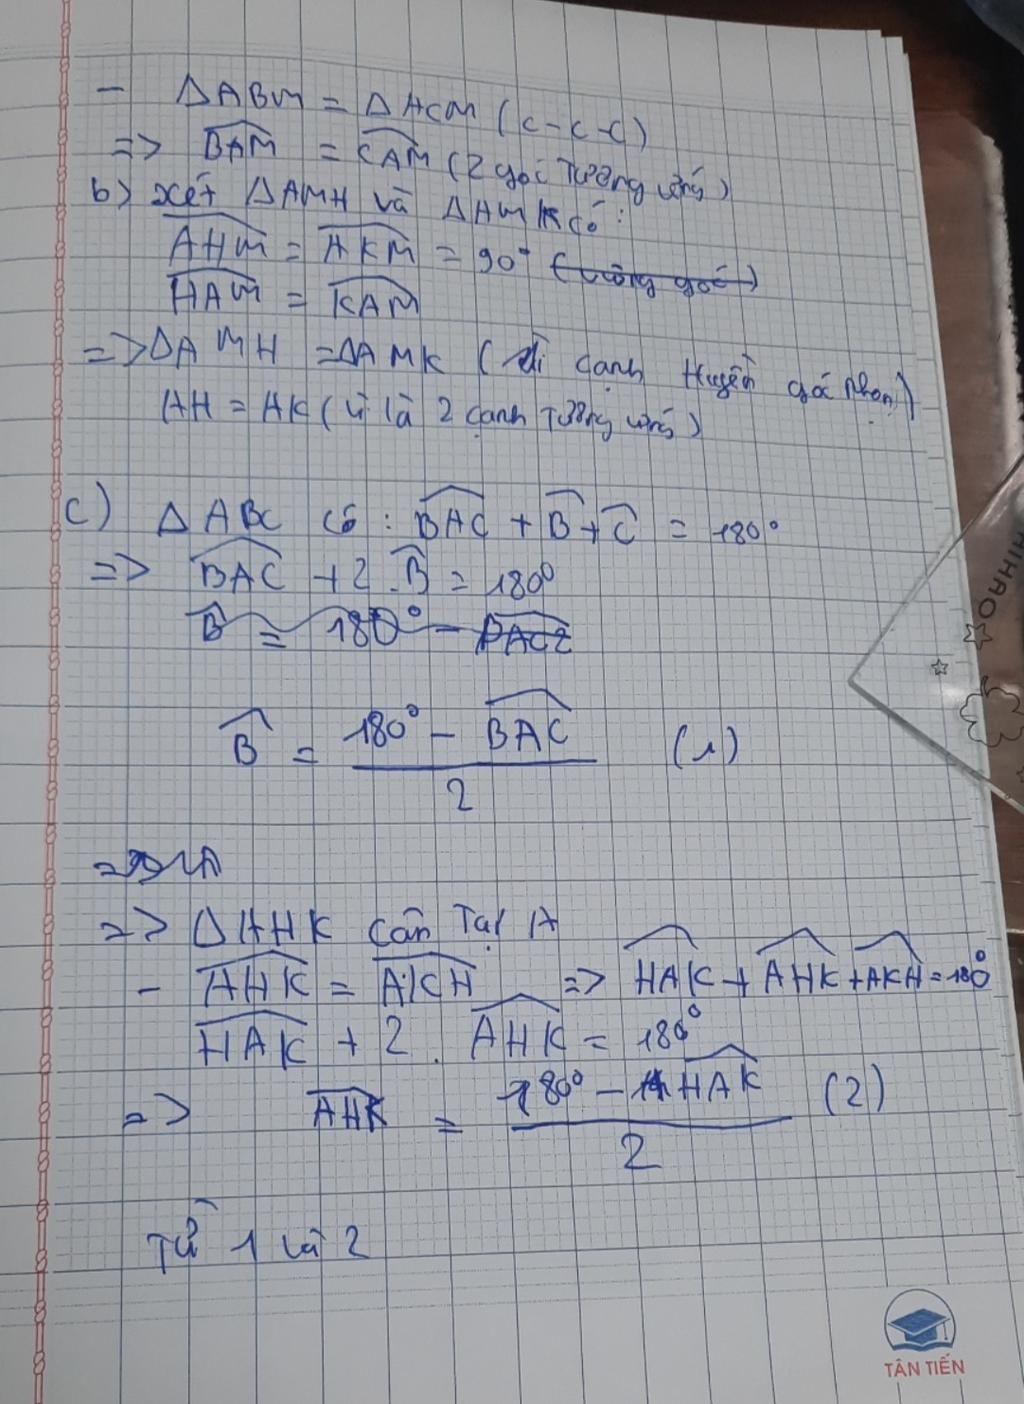 - ΔABM = ΔACM (c-c-c)
=> BAM = CAM (2 góc tương ứng)
b) xét ΔAMH và ΔAMK có:
AHM = AKM = 90° (vuông góc)
HAM = KAM
=> ΔAMH = ΔAMK ( cạnh Huyền góc nhọn)
AH = AK (vì là 2 cạnh tương ứng)
c) ΔABC có: BAC + B + C = 180°
=> BAC + 2.B = 180°
B = 180° - BAC2
B = (180° - BAC)/2 (1)
=> ΔAHK cân Tại A
- AHK = AKH => HAK + AHK + AKH = 180°
HAK + 2. AHK = 180°
=> AHK = (180° - HAK)/2 (2)
Từ 1 và 2
NIHAO
TÂN TIẾN